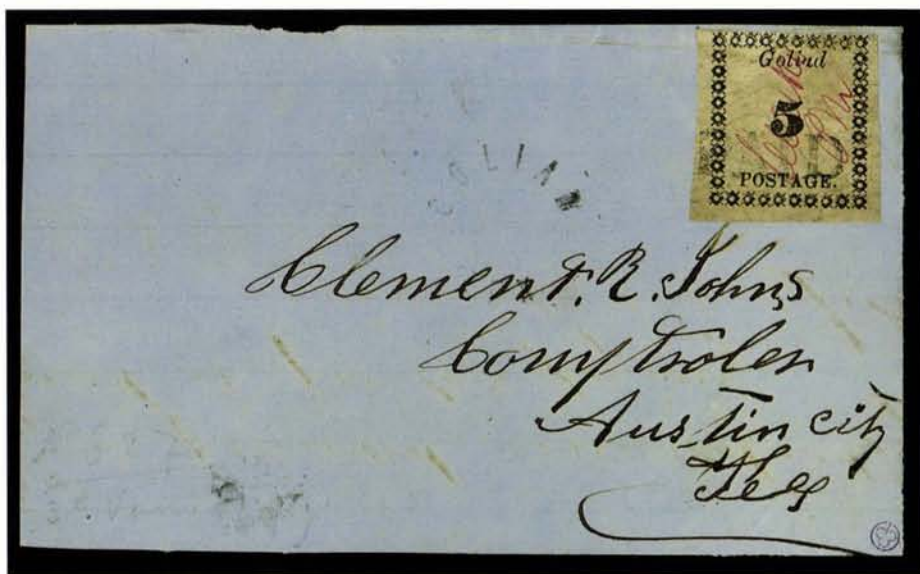 Goliad
5
POSTAGE.
GOLIAD
Clement. R. Johns
Comptroler
Austin city
Tex